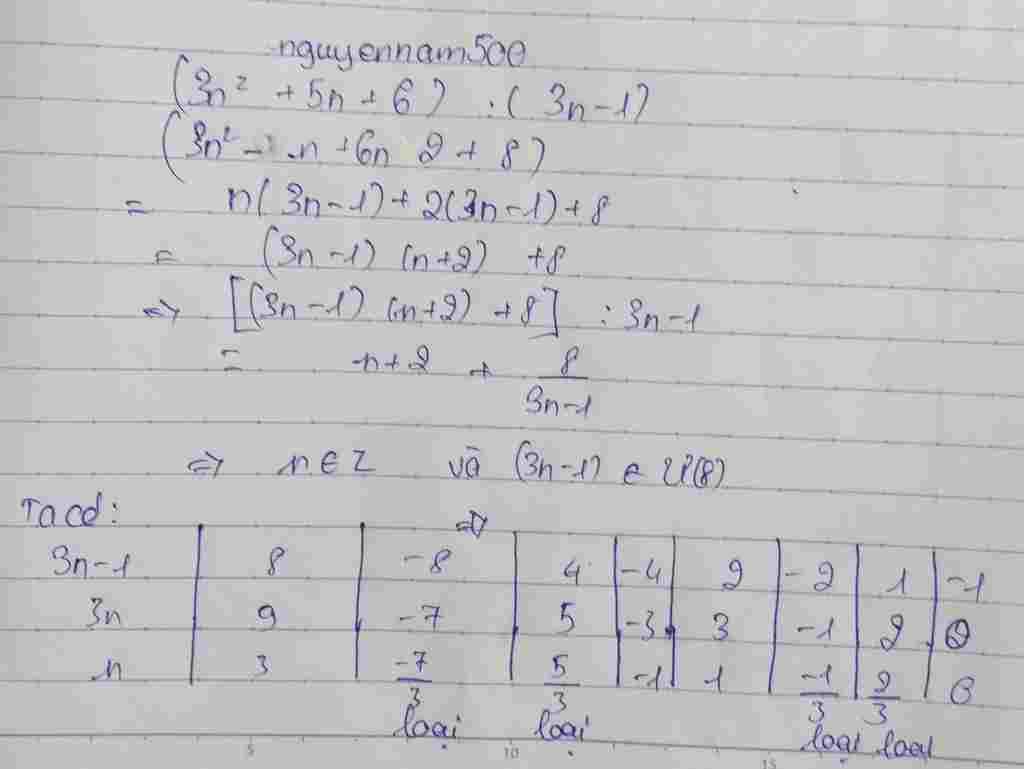 nguyennam500
(3n² + 5n + 6) : (3n-1)
(3n² - n + 6n 2 + 8)
= n(3n-1) + 2(3n-1) + 8
= (3n-1) (n+2) +8
=> [(3n-1) (n+2) +8] : 3n-1
= n+2 + 8/3n-1
=> n ∈ Z và (3n-1) ∈ Ư(8)
Ta có: =>
3n-1 8 -8 4 -4 2 -2 1 -1
3n 9 -7 5 -3 3 -1 2 0
n 3 -7/3 5/3 -1 1 -1/3 2/3 0
loại loại loại loại